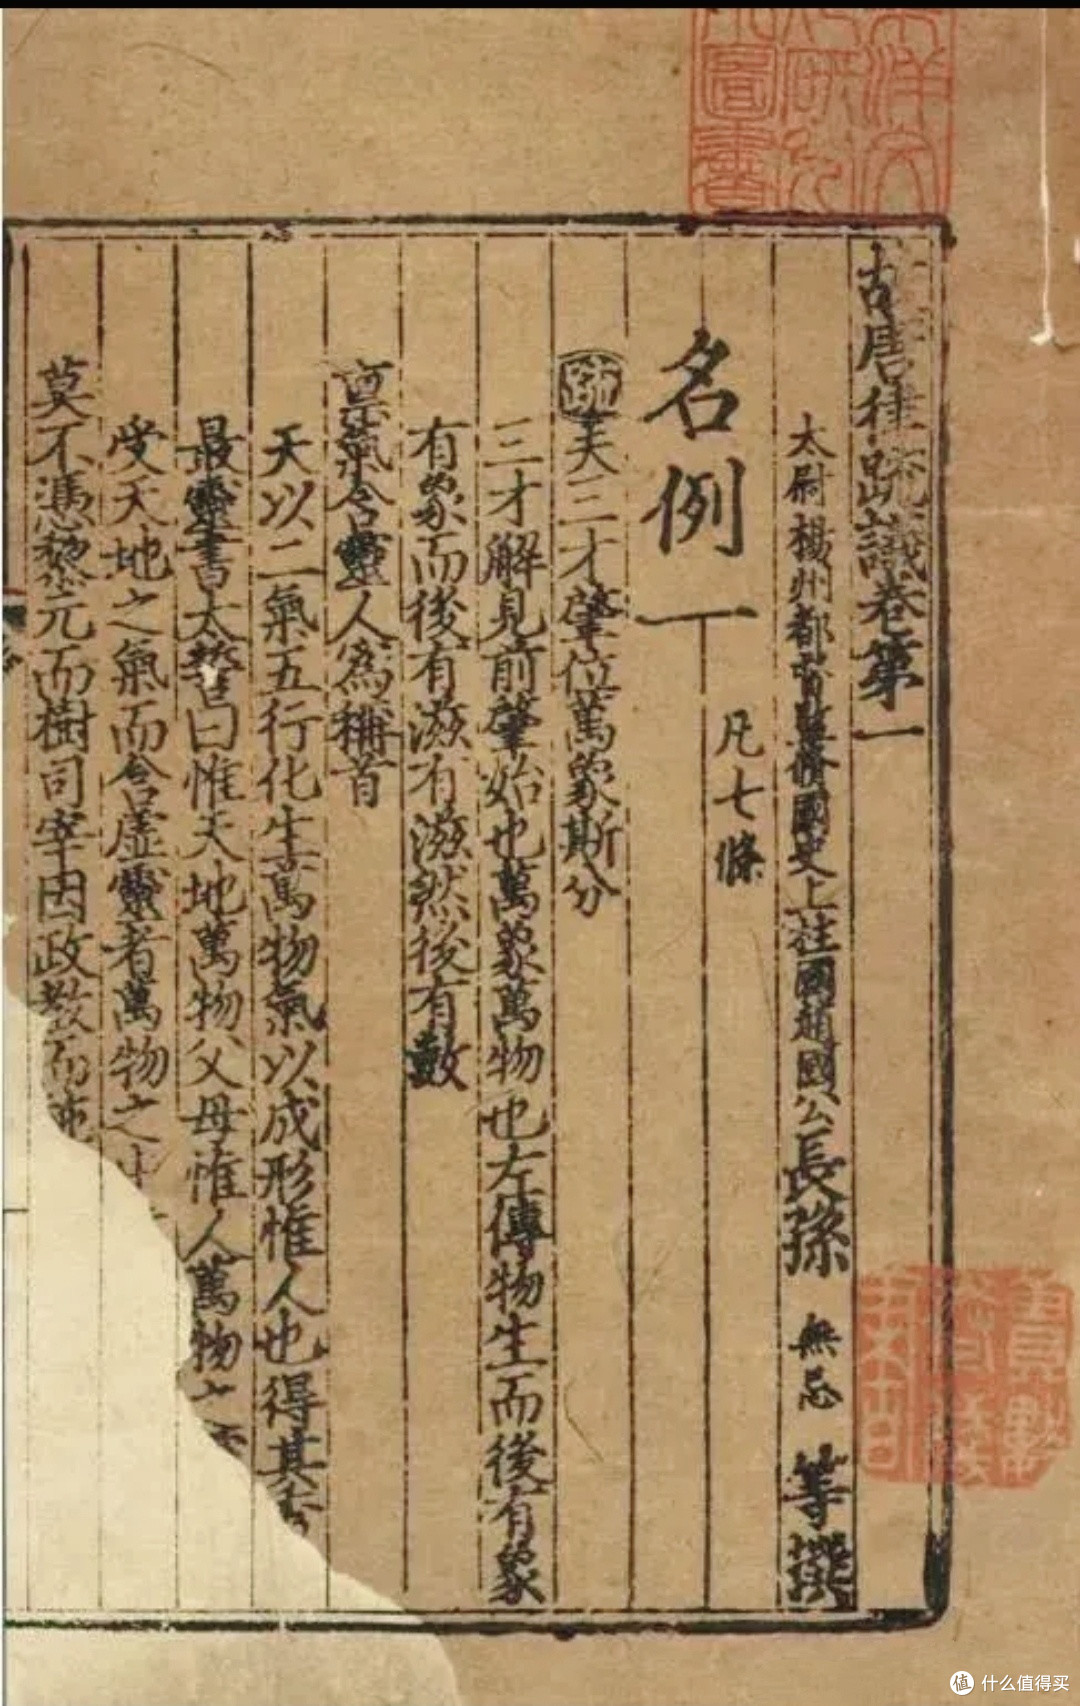 故唐律疏議卷第一
太尉揚州都督監修國史上柱國趙國公長孫無忌等撰
名例一
凡七條
疏夫三才肇位萬象斯分
三才解見前肇始也萬象萬物也左傳物生而後有象
有象而後有滋有滋然後有數
稟氣含靈人爲稱首
天以二氣五行化生萬物氣以成形惟人也得其秀
最靈書太誓曰惟天地萬物父母惟人萬物之
受天地之氣而含虛靈者萬物之
莫不憑黎元而樹司宰因政教而
圖書
什么值得买